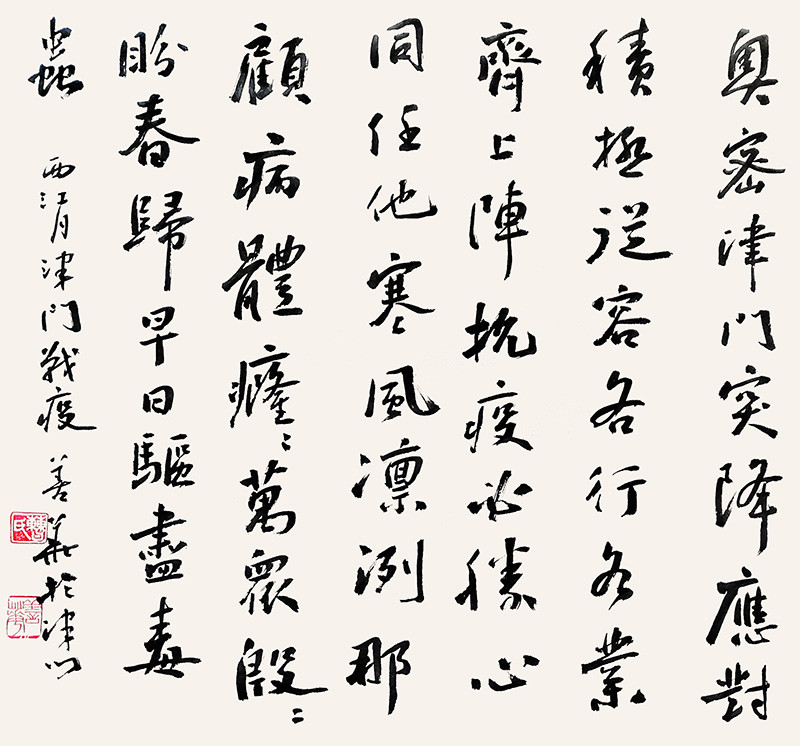 奧密津門突降應對
積極從容各行各業
齊上陣抗疫必勝心
同任他寒風凛冽那
顧病體癃〻萬眾殷〻
盼春歸早日驅盡毒
蟲 西江月津門戰疫 善華於津門